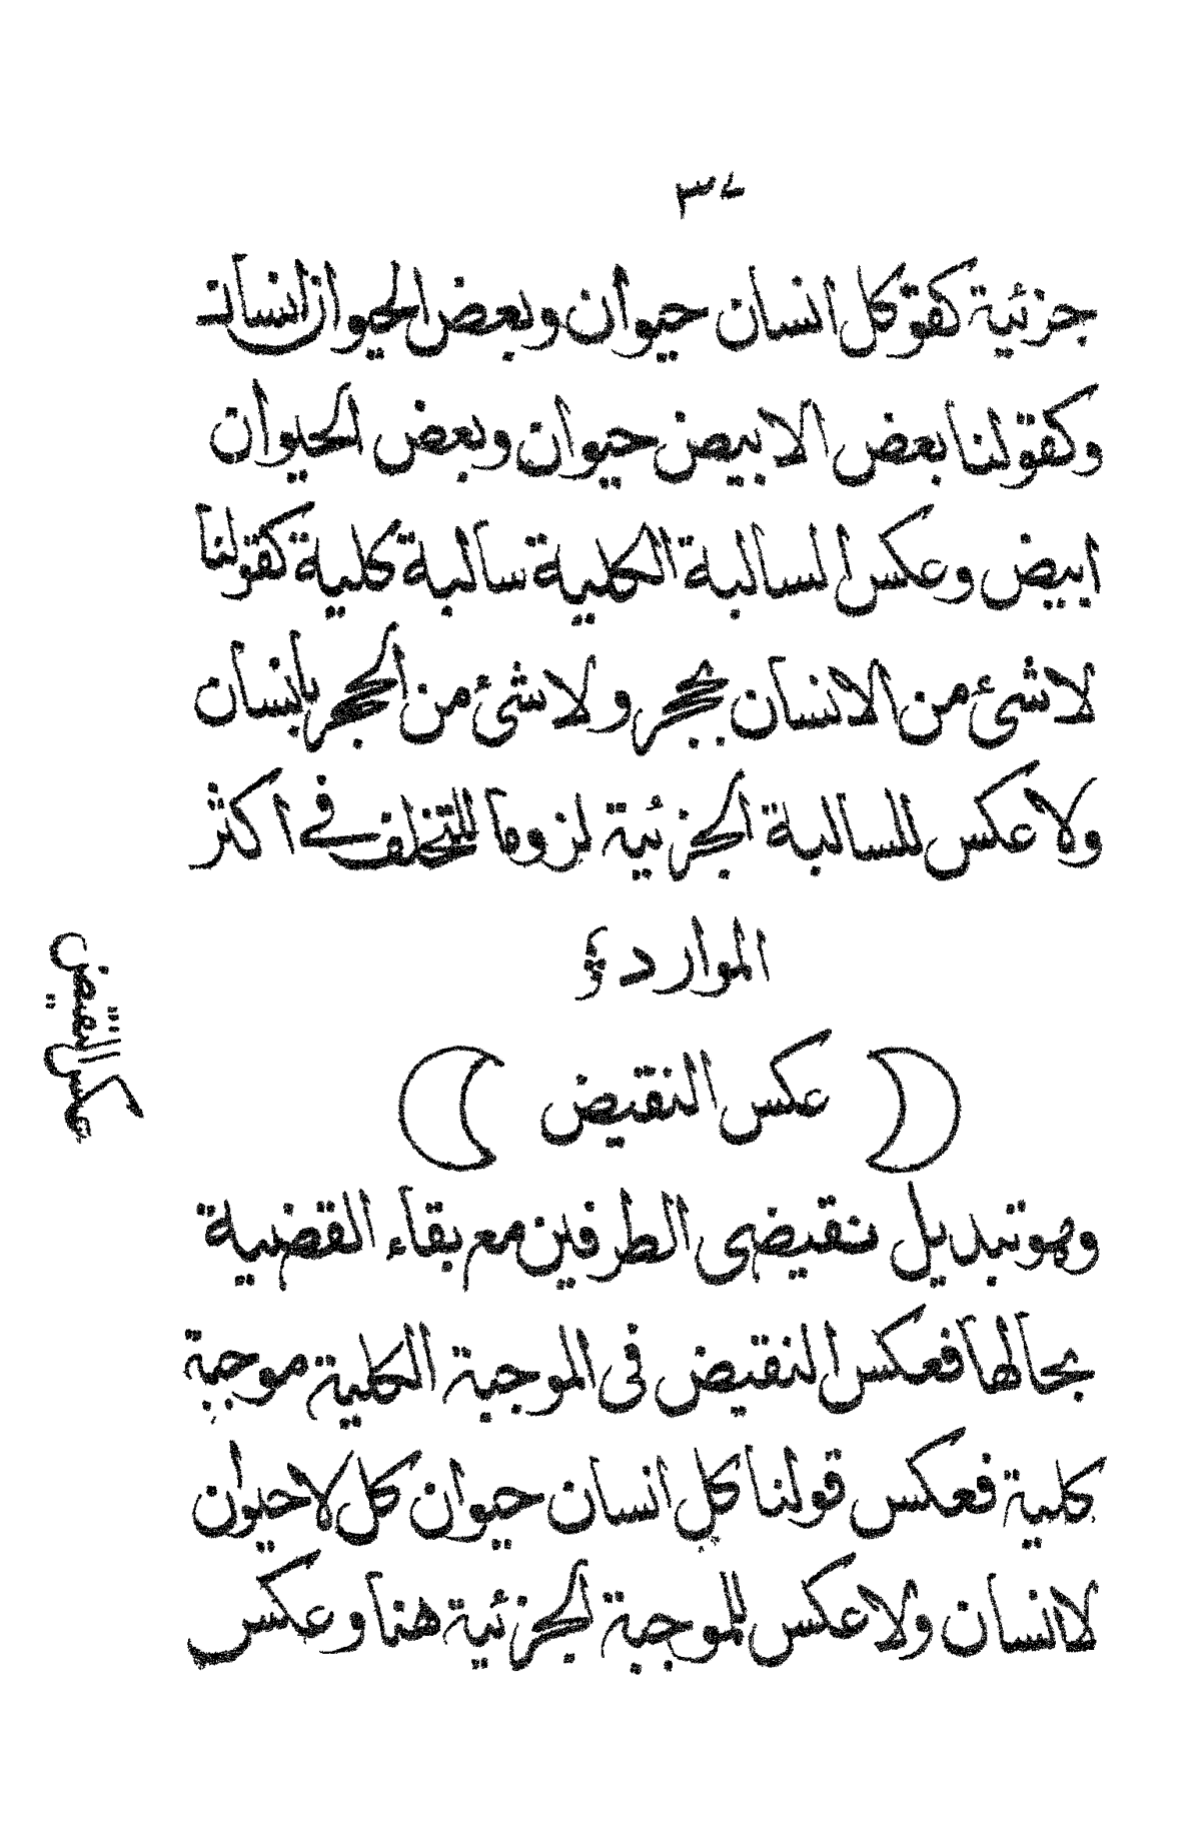 ٣٧
جزئية كقو كل انسان حيوان وبعض الحيوان انسان
وكقولنا بعض الابيض حيوان وبعض الحيوان
ابيض وعكس السالبة الكلية سالبة كلية كقولنا
لاشئ من الانسان بحجر ولاشئ من الحجر بانسان
ولا عكس للسالبة الجزئية لزوما للتخلف في اكثر
الموارد
عكس النقيض
عكس النقيض
وهو تبديل نقيضى الطرفين مع بقاء القضية
بحالها فعكس النقيض فى الموجبة الكلية موجبة
كلية فعكس قولنا كل انسان حيوان كل لاحيوان
لاانسان ولا عكس للموجبة الجزئية هنا وعكس